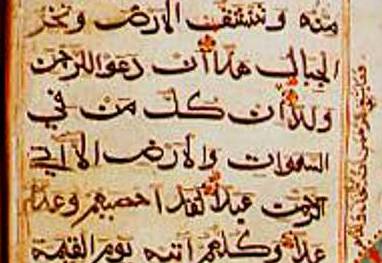 منه وتنشق الارض وتخر
الجبال هدا ان دعوا للرحمن
ولدا ان كل من في
السموات والارض الا اتي
الرحمن عبدا لقد احصيهم وعدهم
عدا وكلهم اتيه يوم القيمة